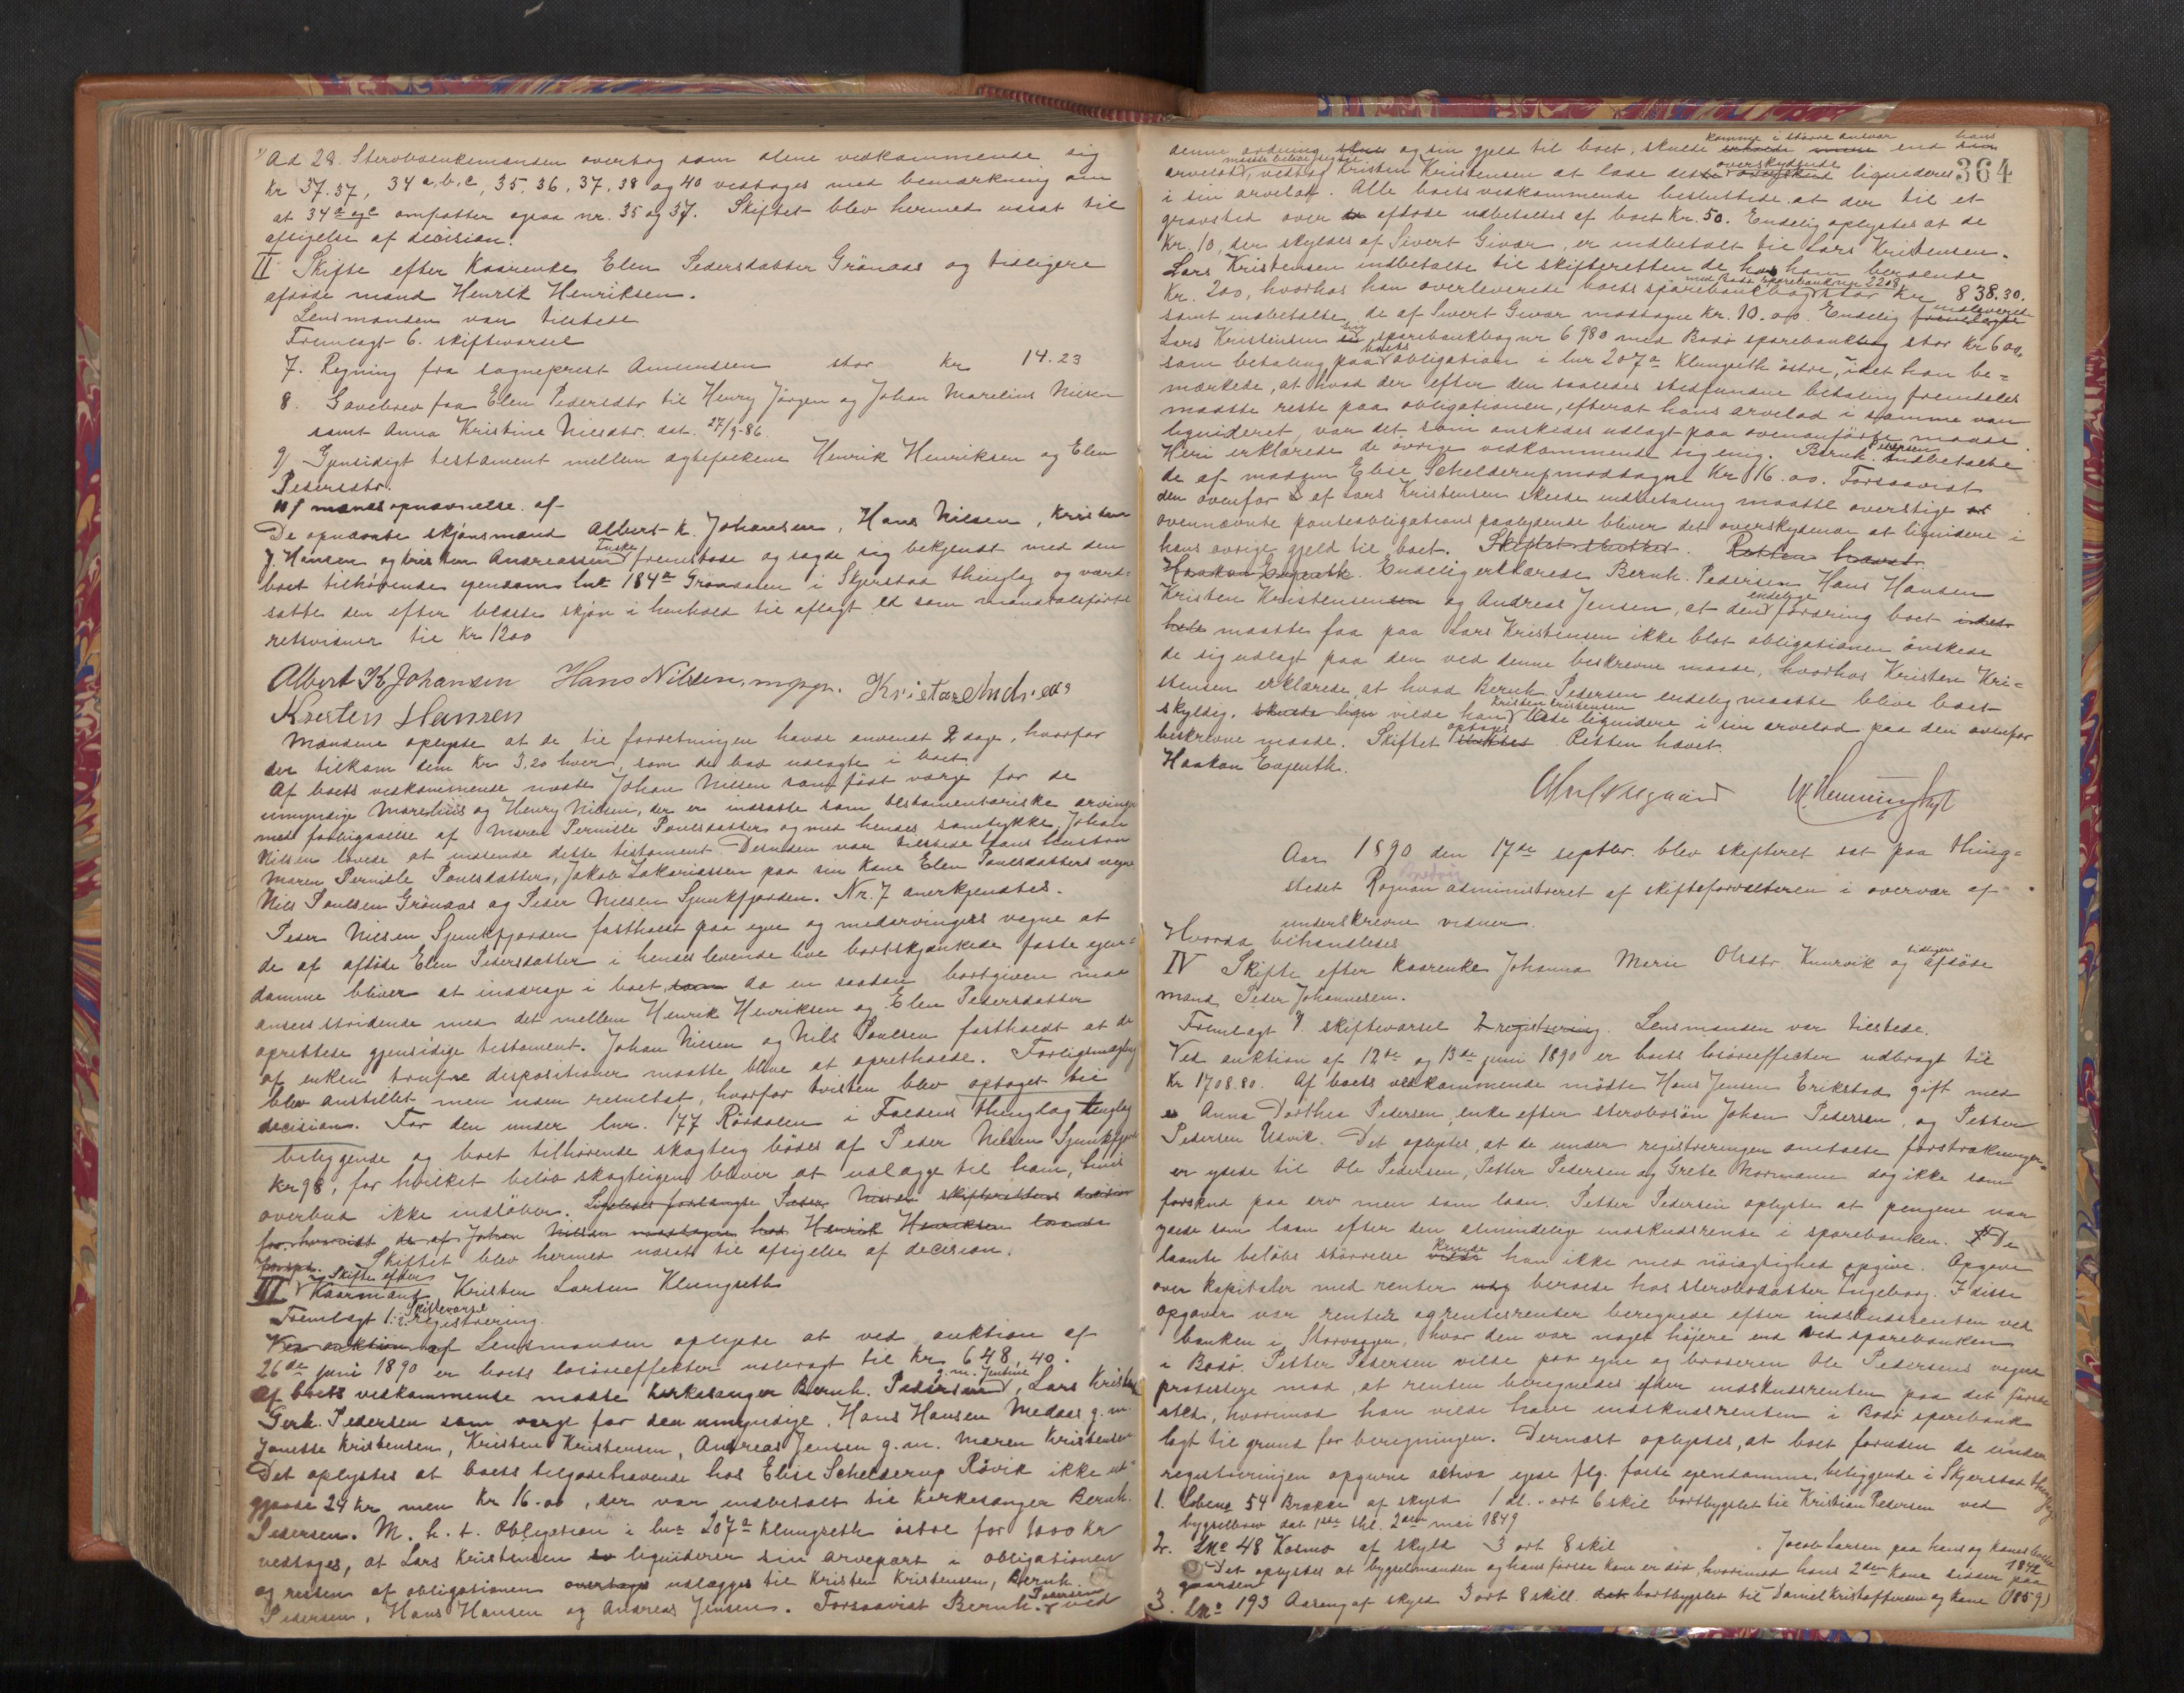 Ad 28. Stervboenkemanden overtog som alene vedkommende sig
Kr 37.37, 34 a, b, c, 35. 36, 37, 38 og 40 vedtoges med bemærkning om
at 34 a og c omfatter ogsaa nr. 35 og 37. Skiftet blev hermed udsat til
afsigelse af decision.
II Skifte efter Kaarenke Elen Pedersdatter Grönaas og tidligere
afdöde mand Henrik Henriksen.
Lensmanden var tilstede
Fremlagt 6. skiftevarsel
7. Regning fra sogneprest Amundsen stor kr 14.23
8. Gavebrev fra Elen Pedersdtr til Henry Jörgen og Johan Marelius Nilsen
samt Anna Kristine Nilsdtr. dat. 27/9-86.
9) Gjensidigt testament mellem ægtefolkene Henrik Henriksen og Elen
Pedersdtr.
10/ mands opnævnelse af
De opnævnte skjönsmænd Albert K. Johansen, Hans Nilsen, Kristen
J. Hansen og Kristen Andreassen Fuske fremstode og sagde sig bekjendt med den
boet tilhörende eiendom lnr 184a Grönaasen i Skjerstad thinglag og værd=
satte den efter bedste skjön i henhold til aflagt ed som mandtalsförte
retsvidner til Kr 1200
Albert K Johansen Hans Nilsen, m.p.p. Kristen Andreas
Kresten Hansen
Mændene oplyste at de til forretningen havde anvendt 2 dage, hvorfor
der tilkom dem Kr 3.20 hver, som de bad udlagte i boet.
Af boets vedkommende mödte Johan Nilsen som födt værge for de
umyndige Marelius og Henry Nilsen, der er indsatte som testamentariske arvinge
med forbigaaelse af Maren Pernille Poulsdatter og med hendes samtykke. Johan
Nilsen lovede at indsende dette testament. Desuden var tilstede hans hustru
Maren Pernille Poulsdatter, Jakob Zakariassen paa sin kone Elen Poulsdatters vegne
Nils Poulsen Grönaas og Peder Nilsen Sjunkfjorden. Nr. 7 anerkjendtes.
Peder Nilsen Sjunkfjorden fastholdt paa egne og medarvingers vegne at
de af afdöde Elen Pedersdatter i hendes levende live bortskjænkede faste eien=
domme bliver at inddrage i boet, som da en saadan bortgiven maa
ansees stridende med det mellem Henrik Henriksen og Elen Pedersdatter
oprettede gjensidige testament. Johan Nilsen og Nils Poulsen fastholdt at de
af enken trufne dispositioner maatte blive at opretholde. Forligsmægling
blev anstillet men uden resultat, hvorfor tvisten blev optaget til
decision. For den under lnr. 177 Rördalen i Foldens thinglag tinglag
beliggende og boet tilhörende skogteig bödes af Peder Nilsen Sjunkfjord
Kr 98, for hvilket belöb skogteigen bliver at udlægge til ham, hvis
overbud ikke indlöber. Ligeledes forlangte Peder Nilsen skifterettens decision
for hvorvidt de af Johan Nilsen modtagne hos Henrik Henriksen laande
Skiftet blev hermed udsat til afsigelse af decision.
III Skifte efter Kaarmand Kristen Larsen Klungseth
Fremlagt 1. Skiftevarsel 2. registrering.
Ved auktion af Lensmanden oplyste at ved auktion af
26de juni 1890 er boets lösöreeffekter udbragt til Kr 648,40.
Af boets vedkommende mödte kirkesanger Bernh. Pedersen g.m. Jentine, Lars Kristens
Gerh. Pedersen som værge for den umyndige, Hans Hansen Medaas g.m.
Janette Kristensen, Kristen Kristensen, Andreas Jensen g.m. Maren Kristensen
Det oplystes at boets tilgodehavende hos Elise Schelderup Rövik ikke ud=
gjorde 24 kr men Kr 16.00, der var indbetalt til kirkesanger Bernh.
Pedersen. M. h. t. Obligation i lnr 207a Klungseth östre for 1000 Kr
vedtoges, at Lars Kristensen liquiderer sin arvepart i obligationen
og resten af obligationen overtages udlægges til Kristen Kristensen, Bernh.
Pedersen, Hans Hansen og Andreas Jensen. Forsaavidt Bernh. Pedersen ved
364
denne ordning og sin gjeld til boet, skulde komme i större ansvar end hans
arvelod, vedtog Kristen Kristensen at lade dette overskydende liquideres
i sin arvelod. Alle boets vedkommende besluttede at der til et
gravsted over afdöde udbetaltes af boet Kr. 50. Endelig oplystes at de
Kr. 10, der skyldes af Sivert Givær, er indbetalt til Lars Kristensen.
Lars Kristensen indbetalte til skifteretten de hos ham beroende
Kr. 200, hvorhos han overleverede boets sparebankbog med Bodö Sparebank nr 2208 stor Kr 838.30.
samt indbetalte de af Sivert Givær modtagne Kr. 10.00. Endelig fremlagde indleverede
Lars Kristensen sin sparebankbog nr 6980 med Bodö sparebank stor Kr 600,
som betaling paa boets obligation i lnr 207a Klungseth östre, idet han be=
mærkede, at hvad der efter den saaledes stedfundne betaling fremdeles
maatte reste paa obligationen, efterat hans arvelod i samme var
liquideret, var det som önskedes udlagt paa ovenanförte maade
Heri erklærede de övrige vedkommende sig enig. Bernh. Pedersen indbetalte
de af madam Elise Schelderup modtagne Kr 16.00. Forsaavidt
den ovenfor af Lars Kristensen skeede indbetaling maatte overstige
ovennævnte panteobligations paalydende bliver det overskydende at liquidere i
hans övrige gjeld til boet. Skiftet sluttet. Retten hævet.
Haakon Evjenth. Endelig erklærede Bernh. Pedersen Hans Hansen
Kristen Kristensen og Andreas Jensen, at den endelige fordring boet
maatte faa paa Lars Kristensen ikke blot obligationen önskede
de sig udlagt paa den ved denne beskrevne maade, hvorhos Kristen Kri=
stensen erklærede, at hvad Bernh. Pedersen endelig maatte blive boet
skyldig, skulde lign vilde han Kristen Kristensen lade liquidere i sin arvelod paa den ovenfor
beskrevne maade. Skiftet optages sluttet Retten hævet.
Haakon Evjenth.
Aar 1890 den 17de septbr. blev skifteret sat paa thing=
stedet Rognan administreret af skifteforvalteren i overvær af
underskrevne vidner.
Hvorda behandledes
IV Skifte efter Kaarenke Johanna Marie Olsdtr Knurvik og tidligere afdöde
mand Peder Johannesen.
Fremlagt 1. skiftevarsel 2 registrering. Lensmanden var tilstede.
Ved auktion af 12te og 13de juni 1890 er boets lösöreeffecter udbragt til
Kr 1708.80. Af boets vedkommende mödte Hans Jensen Erikstad gift med
Anna Dorthea Pedersen, enke efter stervbosön Johan Pedersen, og Petter
Pedersen Udvik. Det oplystes, at de under registreringen anstalte forstrækninger
er ydede til Ole Pedersen, Petter Pedersen og Grete Normann dog ikke som
forskud paa arv men som laan. Petter Pedersen oplyste at pengene var
ydede som laan efter den almindelige indskudsrente i sparebanken. De
laante belöbs störrelse kunde han ikke med nöiagtighed opgive. Opgave
over kapitaler med renter beroede hos stervbodatter Ingeborg. I disse
opgaver var renter og rentesrenter beregnede efter indskudsrenten ved
banken i Storvaagen, hvor den var noget höiere end ved sparebanken
i Bodö. Petter Pedersen vilde paa egne og broderen Ole Pedersens vegne
protestere mod, at renten beregnedes efter indskudsrenten paa det förste
sted, hvorimod han vilde have indskudsrenten i Bodö sparebank
lagt til grund for beregningen. Dernæst oplystes, at boet foruden de under
registreringen opgivne aktiva eiede flg. faste eiendomme, beliggende i Skjerstad thinglag
1. Löbenr 54 Brække af skyld 1 dl. - ort 6 skil bortbygslet til Kristian Pedersen ved
bygselbrev dat 1ste thl. 2den mai 1849
2. LNo 48 Kosmo af skyld 3 ort 8 skil Jacob Larsen paa hans og kones levetid 1842
Det oplystes at bygselmanden og hans förste kone er död, hvorimod hans 2den kone sidder paa
gaarden
3. LNo 193 Aaseng af skyld 3 ort 8 skill. bortbygslet til Daniel Kristoffersen og kone (1859)